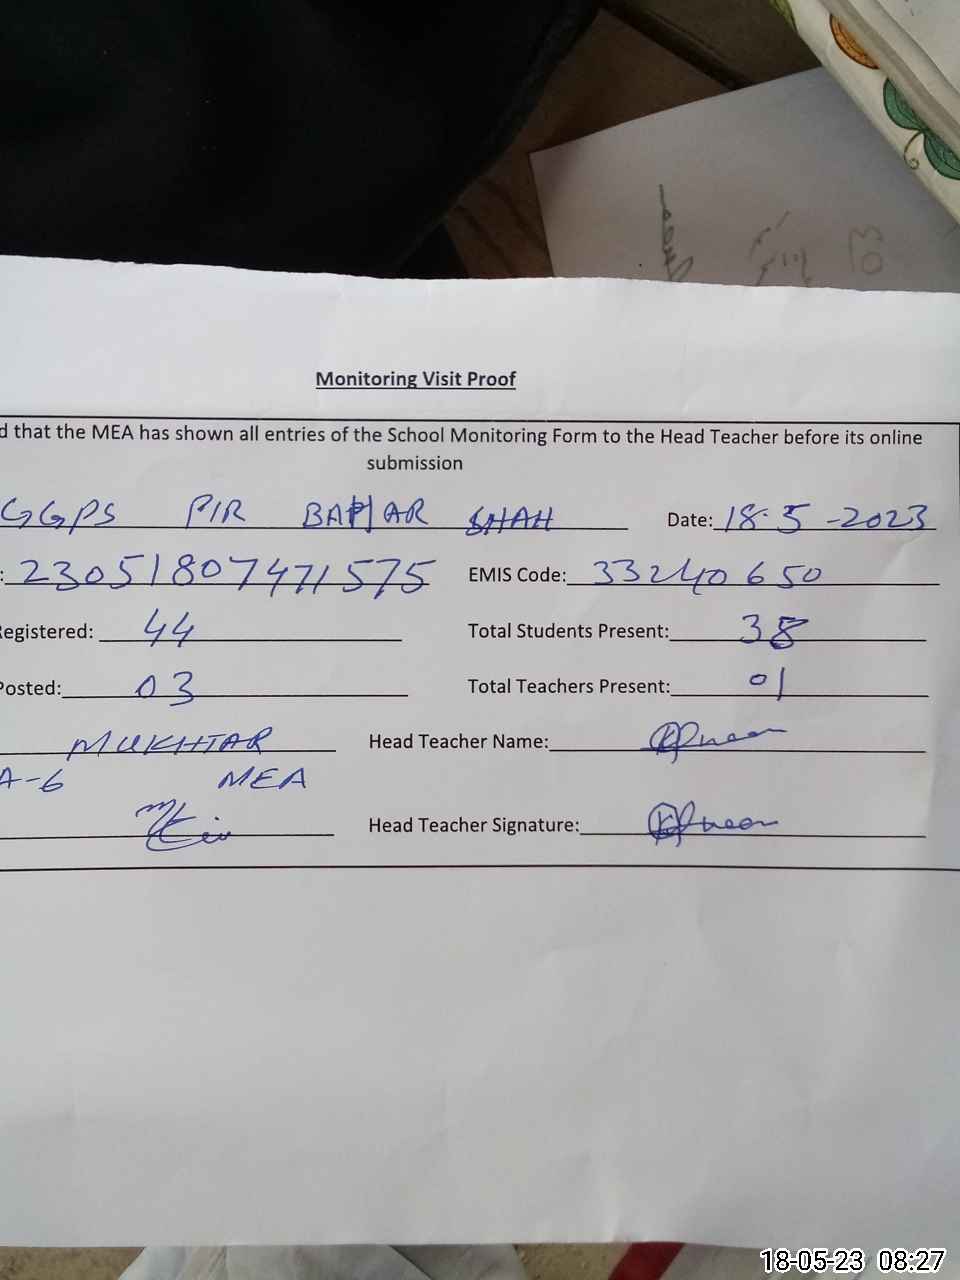 Monitoring Visit Proof
d that the MEA has shown all entries of the School Monitoring Form to the Head Teacher before its online
submission
GGPS PIR BAHAR SHAH Date: 18-5-2023
: 23051807471575 EMIS Code: 33240650
Registered: 44 Total Students Present: 38
Posted: 03 Total Teachers Present: 01
MUKHTAR Head Teacher Name:
A-6 MEA
Head Teacher Signature:
18-05-23 08:27